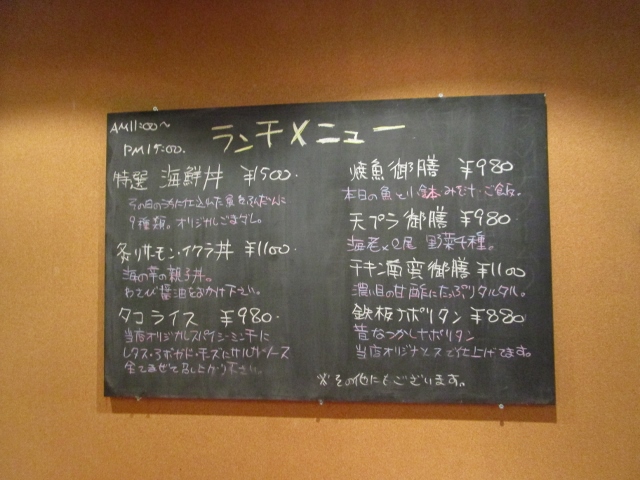 AM11:00〜
PM15:00.
ランチメニュー
特選 海鮮丼 ¥1500.
その日の為に仕込んだ魚をふんだんに
9種類。オリジナルごまダレ。
炙りサーモン・イクラ丼 ¥1100.
海の幸の親子丼。
わさび醤油をかけ下さい。
タコライス ¥980.
当店オリジナルスパイシーミンチに
レタス・アボガド・チーズにサルサソース
全てまぜて召し上がり下さい。
焼魚御膳 ¥980
本日の魚と小鉢・みそ汁・ご飯。
天プラ御膳 ¥980
海老×2尾 野菜4種。
チキン南蛮御膳 ¥1100
濃い目の甘酢にたっぷりタルタル。
鉄板ナポリタン ¥880
昔なつかしナポリタン
当店オリジナルソースで仕上げてます。
※その他にもございます。